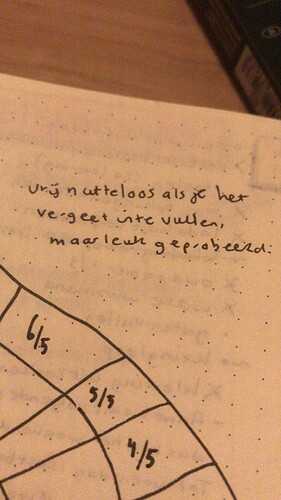 vrij nutteloos als je het
vergeet in te vullen,
maar leuk geprobeerd.
6/5
5/5
4/5